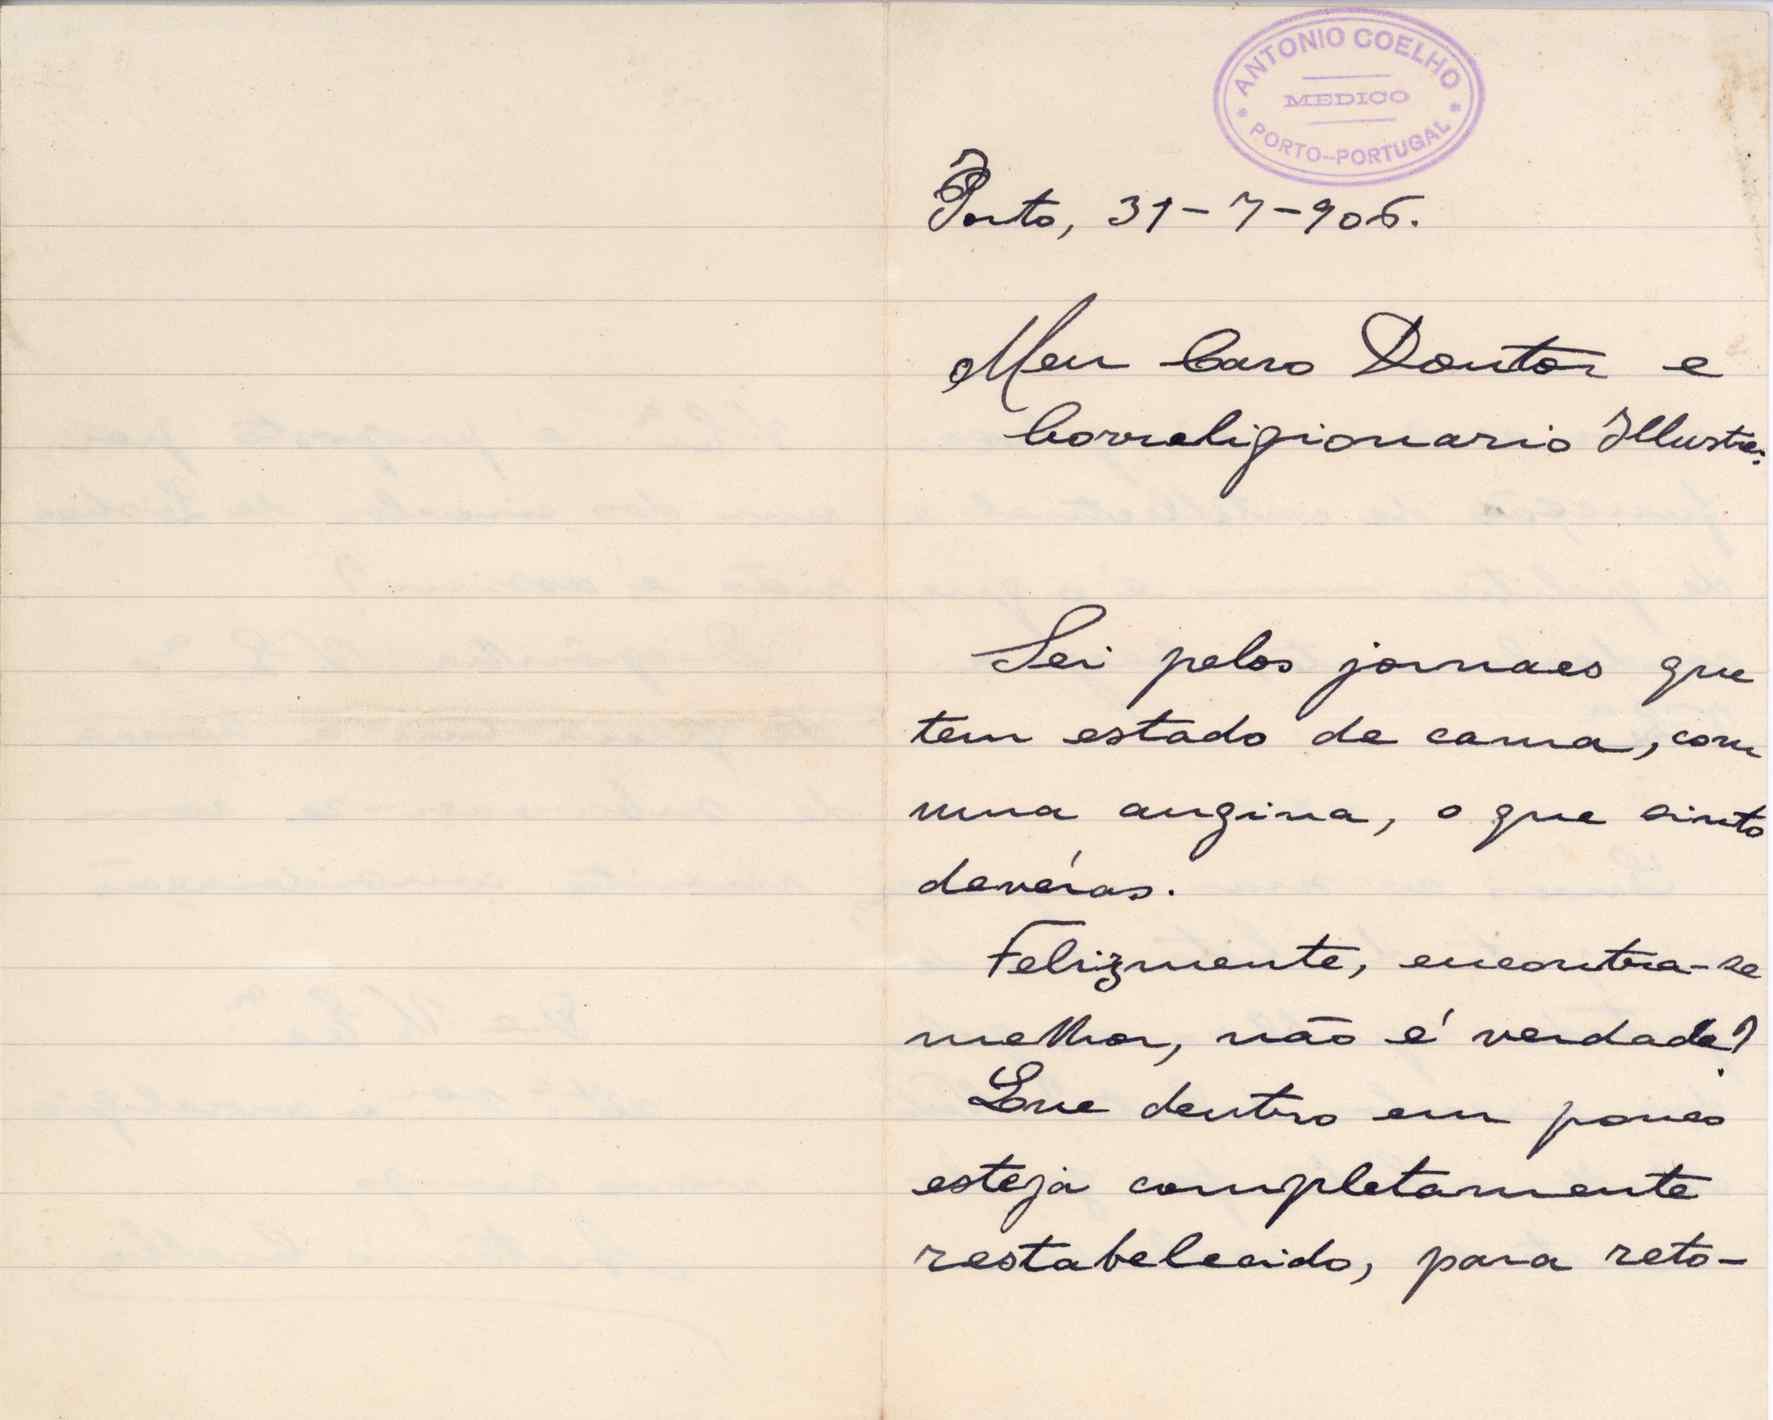 ANTONIO COELHO
MEDICO
PORTO-PORTUGAL
Porto, 31-7-906.
Meu Caro Doutor e
Correligionario Illustre:
Sei pelos jornaes que
tem estado de cama, com
uma angina, o que sinto
devéras.
Felizmente, encontra-se
melhor, não é verdade?
Que dentro em pouco
esteja completamente
restabelecido, para reto-